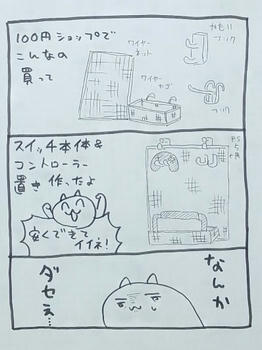 100円ショップで
こんなの
買って
ワイヤー
ネット
ワイヤー
カゴ
フック
フック
スイッチ本体&
コントローラー
置き作ったよ
安くできて
イイネ!
なんか
ダセぇ…